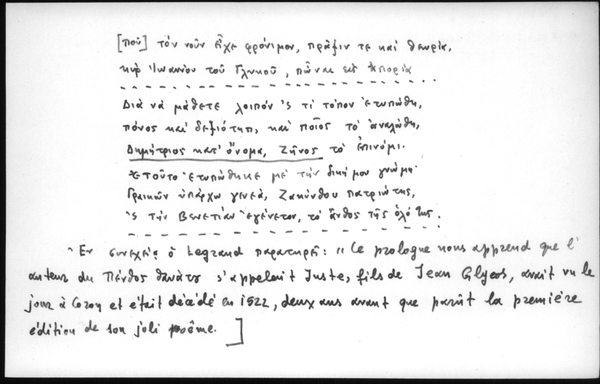 [ποὺ] τὸν νοῦν εἶχε φρόνιμον, πρᾶξιν τε καὶ θεωρία,
κὺρ Ἰωαννίου τοῦ Γλυκοῦ,
Διὰ νὰ μάθετε λοιπὸν 's τί τόπον ἐτυπώθη,
πόνος καὶ δεξιότητι, καὶ ποῖος τὸ ἀναλώθη,
Δημήτριος κατ' ὄνομα, Ζῆνος τὸ ἐπινόμι.
ἐτοῦτο ἐτυπώθηκε μὲ τὴν δική μου γνώμη·
Γραικῶν ὑπάρχω γενεά, Ζακύνθου πατριώτης,
'ς τὴν Βενετίαν ἐγένετον, τὸ ἄνθος τῆς
Ἐν συνεχείᾳ ὁ Legrand παρατηρεῖ: "Le prologue nous apprend que l'
auteur du Πένθος θανάτου s'appelait Juste, fils de Jean Glycos, avait vu le
jour à Coron et était décédé en 1522, deux ans avant que parût la première
édition de son joli poême. ]